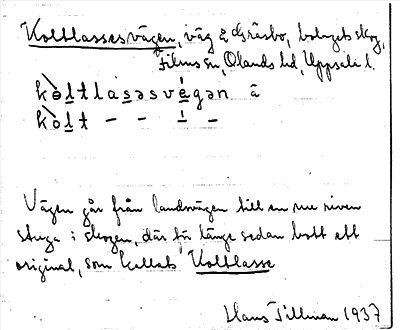 Koltlassesvägen, väg S Gräsbo, bolagets skog,
Films sn, Olands hd, Uppsala l.
kòltlasəsvégən ä
kòlt – – ⸌ –
Vägen går från landsvägen till en nu riven
stuga i skogen, där för länge sedan bott ett
original, som kallats Koltlasse
Hans Tillman 1937